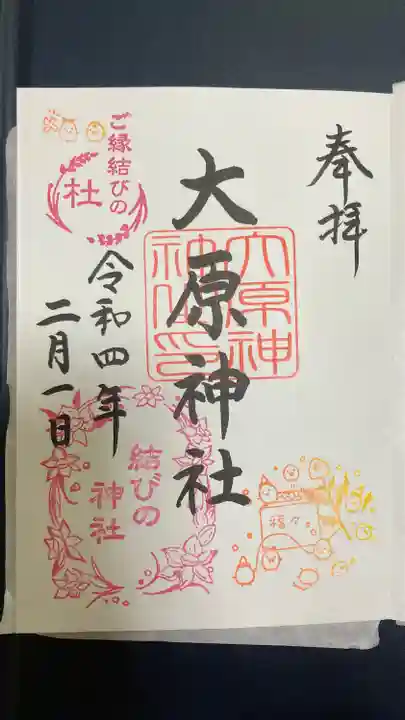 奉拝
大原神社
大原神
社印
令和四年
二月一日
ご縁結びの
杜
結びの
神社
福々